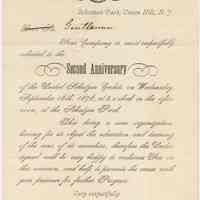 Schuetzen Park, Union Hill, N. J.
Gentlemen
Your Company is most respectfully
invited to the
Second Anniversary
of the United Schutzen Cadets on Wednesday
September 1876, at o'clock in the after-
noon, at the Schutzen Park.
This being a new organization,
having for its object the education and training
of the sons of its members, therefore the Under-
signed will be very happy to welcome You in
this manner, and help to promote the cause with
your presence for further Progress.
Very respectfully